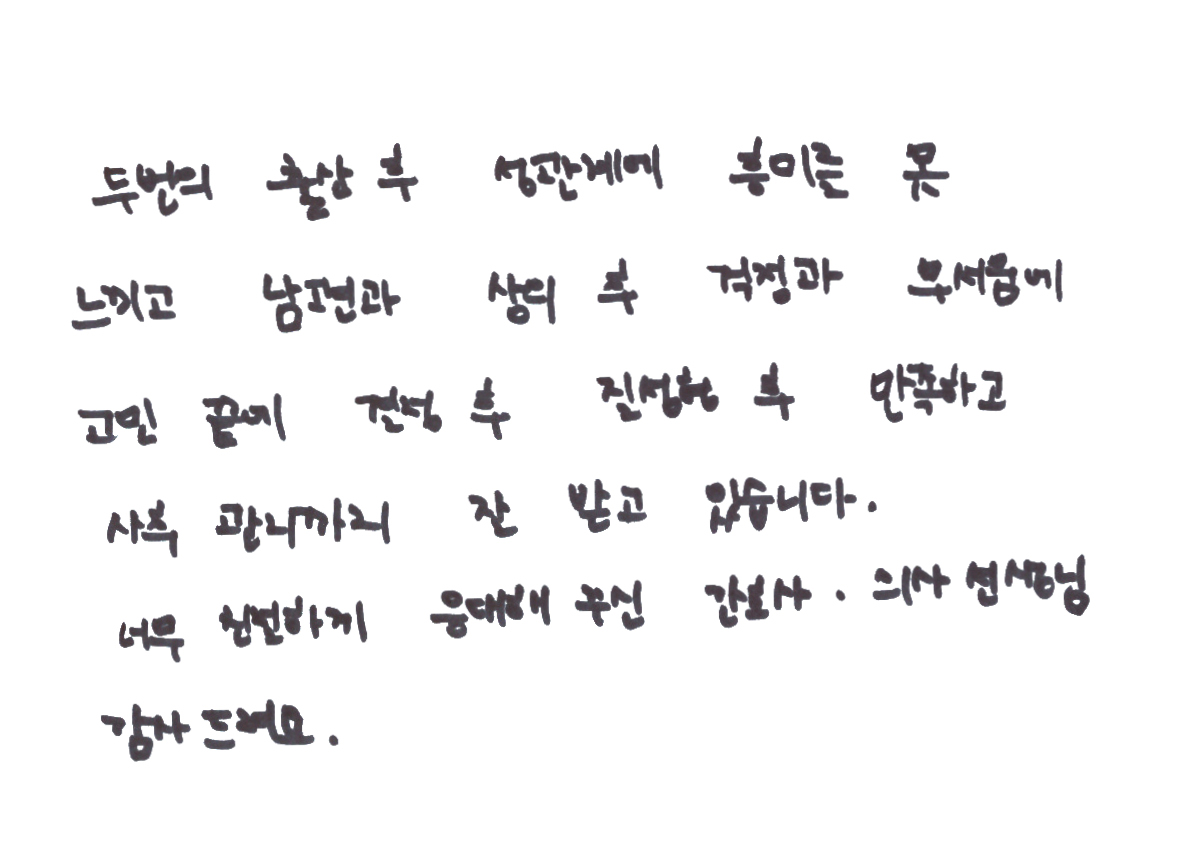 두번의 출산 후 성관계에 흥미를 못
느끼고 남편과 상의 후 걱정과 무서움에
고민 끝에 결정 후 질성형 후 만족하고
사후 관리까지 잘 받고 있습니다.
너무 친절하게 응대해 주신 간호사. 의사 선생님
감사 드려요.